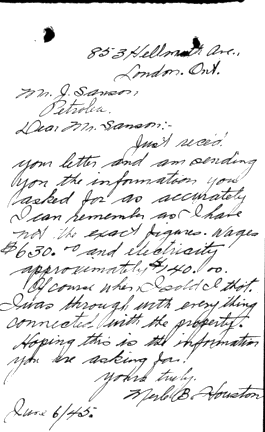 853 Hellmuth Ave.,
London. Ont.
Mr. J. Sanson,
Petrolia.
Dear Mr. Sanson:-
Just rec'd
your letter and am sending
you the information you
asked for as accurately
I can remember as I have
not the exact figures. Wages
$630.00 and electricity
approximately $140.00.
Of course when I sold I that.
I was through with everything
connected with the property.
Hoping this is the information
you are asking for.
yours truly.
Merle B. Houston
June 6/45.